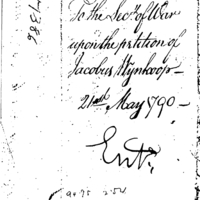 To the Secy. of War
upon the petition of
Jacobus Wynkoop —
21st May 1790 —
Entd.